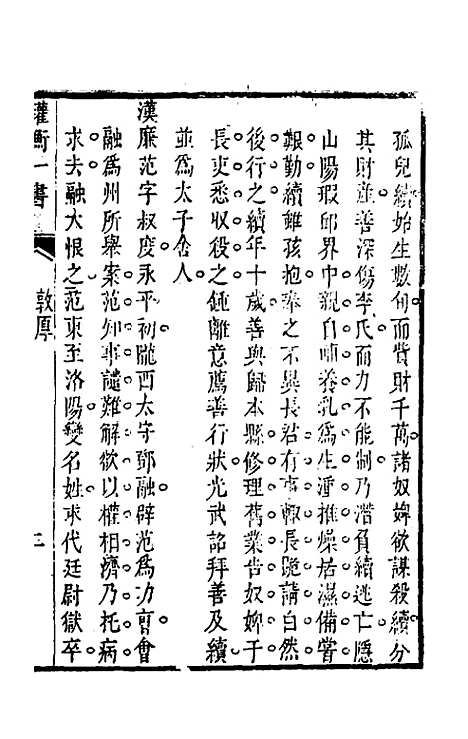 孤兒續始生數旬而貲財千萬諸奴婢欲謀殺續分
其財產善深傷李氏而力不能制乃潛負續逃亡隱
山陽瑕邱界中親自哺養乳爲生湩推燥居濕備嘗
艱勤續雖孩抱奉之不異長君有事輒長跪請白然
後行之續年十歲善與歸本縣修理舊業告奴婢于
長吏悉收殺之鍾離意薦善行狀光武詔拜善及續
並爲太子舍人
漢廉范字叔度永平初隴西太守鄧融辟范爲功曹會
融爲州所舉案范知事譴難解欲以權相濟乃托病
求去融大恨之范東至洛陽變名姓求代廷尉獄卒
權衡一書
敦厚
三